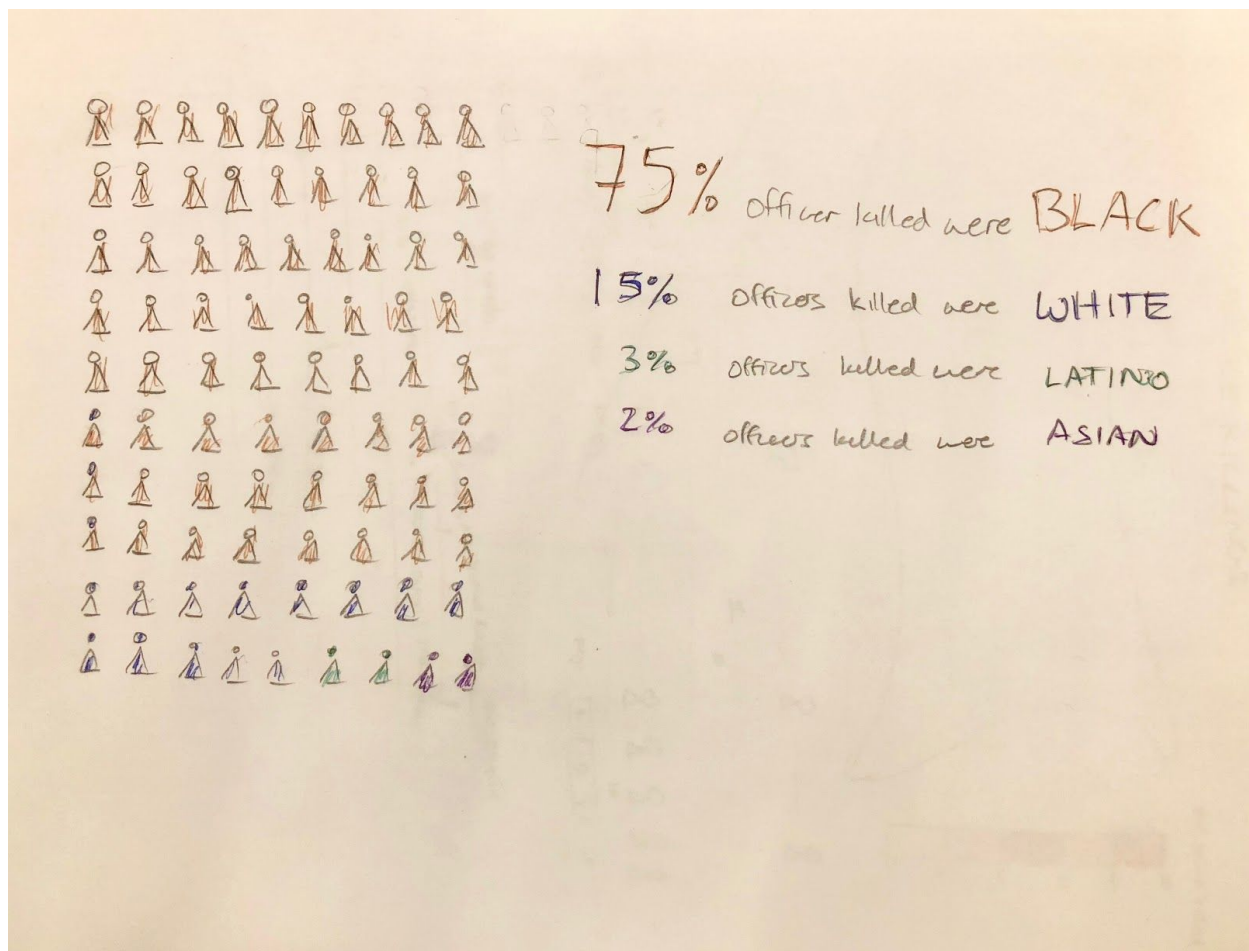 75% officer killed were BLACK
15% officers killed were WHITE
3% officers killed were LATINO
2% officers killed were ASIAN